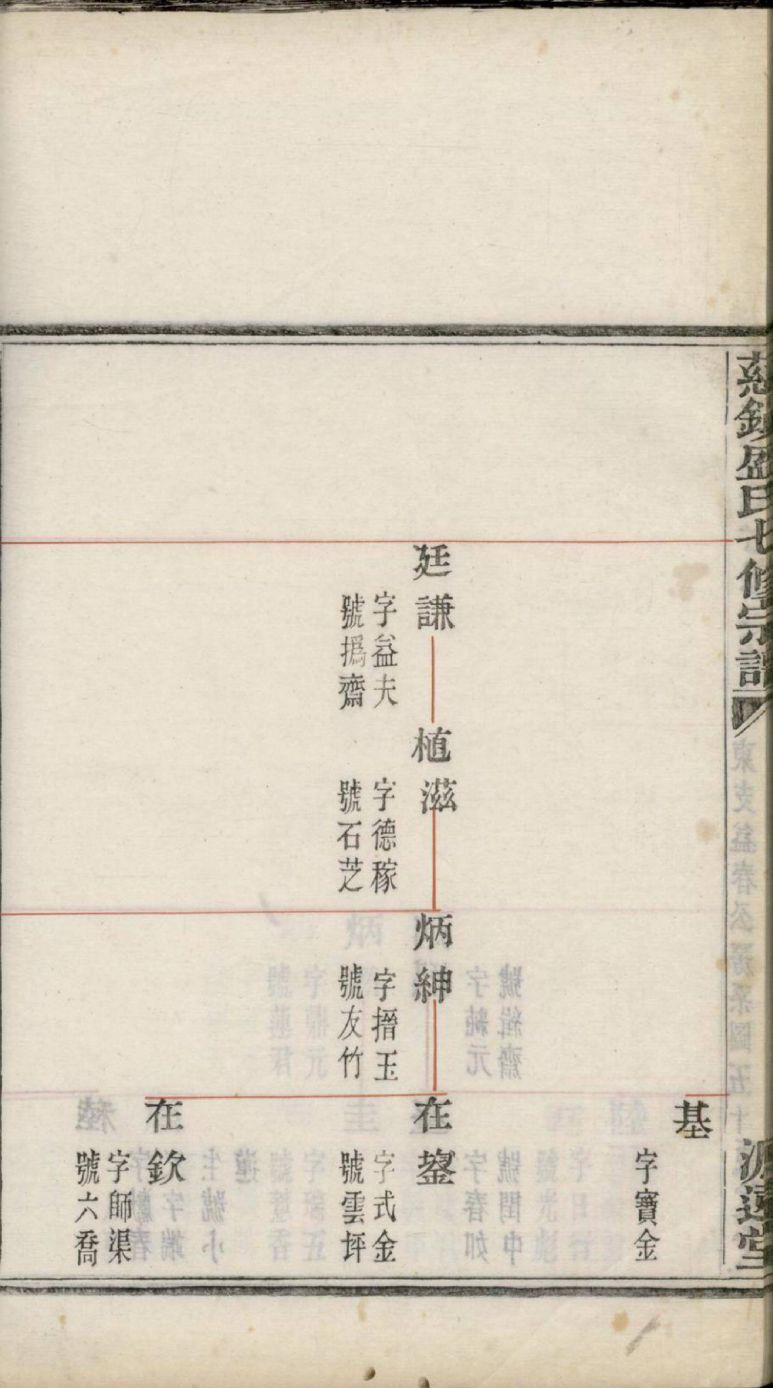 慈鎮盛氏七修宗譜
源遠堂
基
字寶金
廷謙
字益夫
號撝齋
植滋
字德稼
號石芝
炳紳
字搢玉
號友竹
在鋆
字式金
號雲坪
在欽
字師渠
號六喬